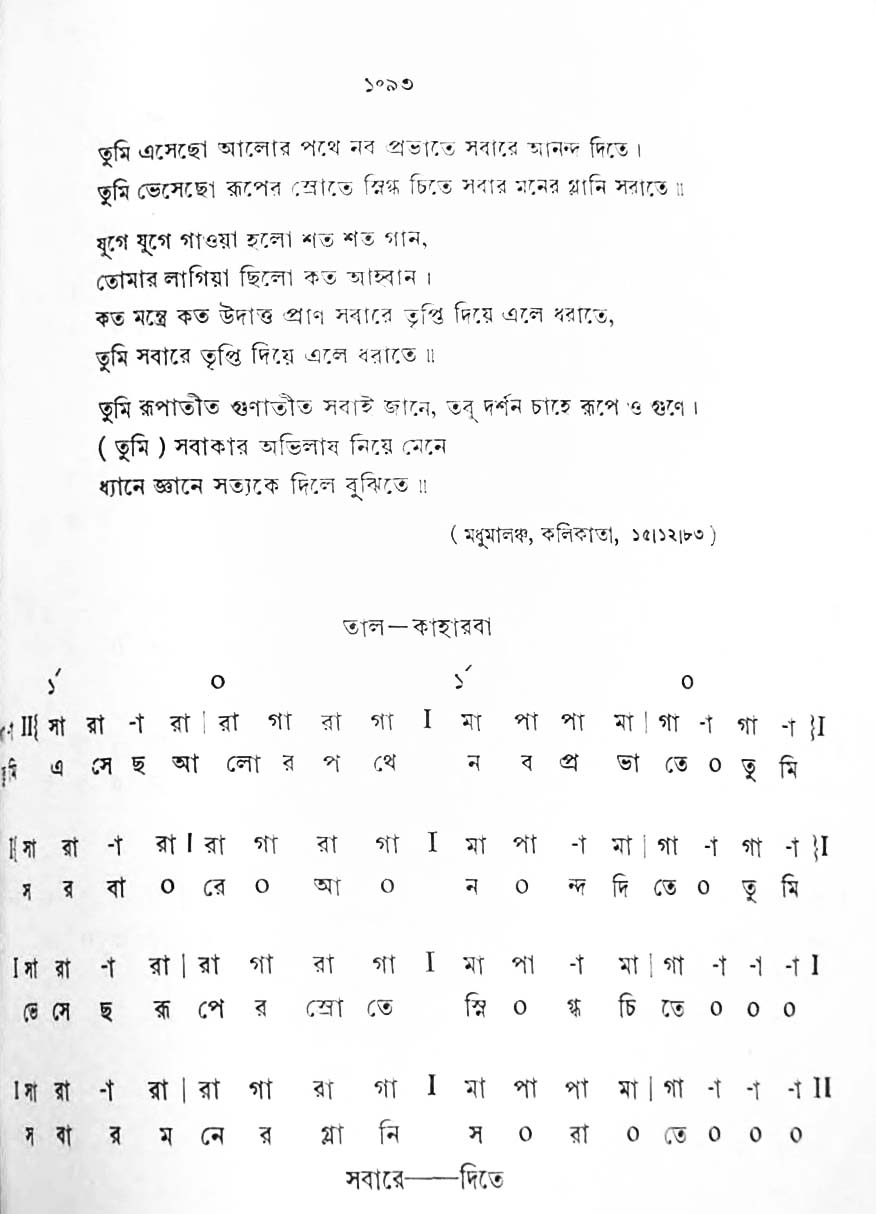 ১০৯৩
তুমি এসেছো আলোর পথে নব প্রভাতে সবারে আনন্দ দিতে ।
তুমি ভেসেছো রূপের স্রোতে স্নিগ্ধ চিতে সবার মনের গ্লানি সরাতে ॥
যুগে যুগে গাওয়া হলো শত শত গান,
তোমার লাগিয়া ছিলো কত আহ্বান ।
কত মন্ত্রে কত উদাত্ত প্রাণ সবারে তৃপ্তি দিয়ে এলে ধরাতে,
তুমি সবারে তৃপ্তি দিয়ে এলে ধরাতে ॥
তুমি রূপাতীত গুণাতীত সবাই জানে, তবু দর্শন চাহে রূপে ও গুণে ।
( তুমি ) সবাকার অভিলাষ নিয়ে মেনে
ধ্যানে জ্ঞানে সত্যকে দিলে বুঝিতে ॥
( মধুমালঞ্চ, কলিকাতা, ১৫।১২।৮৩ )
তাল — কাহারবা
১´ ০ ১´ ০
II{ সা রা -া রা | রা গা রা গা I মা পা পা মা | গা -া গা -া }I
তুমি এ সে ছ আ লো র প থে ন ব প্র ভা তে ০ তু মি
I{ সা রা -া রা I রা গা রা গা I মা পা -া মা | গা -া গা -া }I
স র বা ০ রে ০ আ ০ ন ০ ন্দ দি তে ০ তু মি
I সা রা -া রা | রা গা রা গা I মা পা -া মা | গা -া -া -া I
ভে সে ছ রূ পে র স্রো তে স্নি ০ গ্ধ চি তে ০ ০ ০
I সা রা -া রা | রা গা রা গা I মা পা পা মা | গা -া -া -া II
স বা র ম নে র গ্লা নি স ০ রা ০ তে ০ ০ ০
সবারে——দিতে